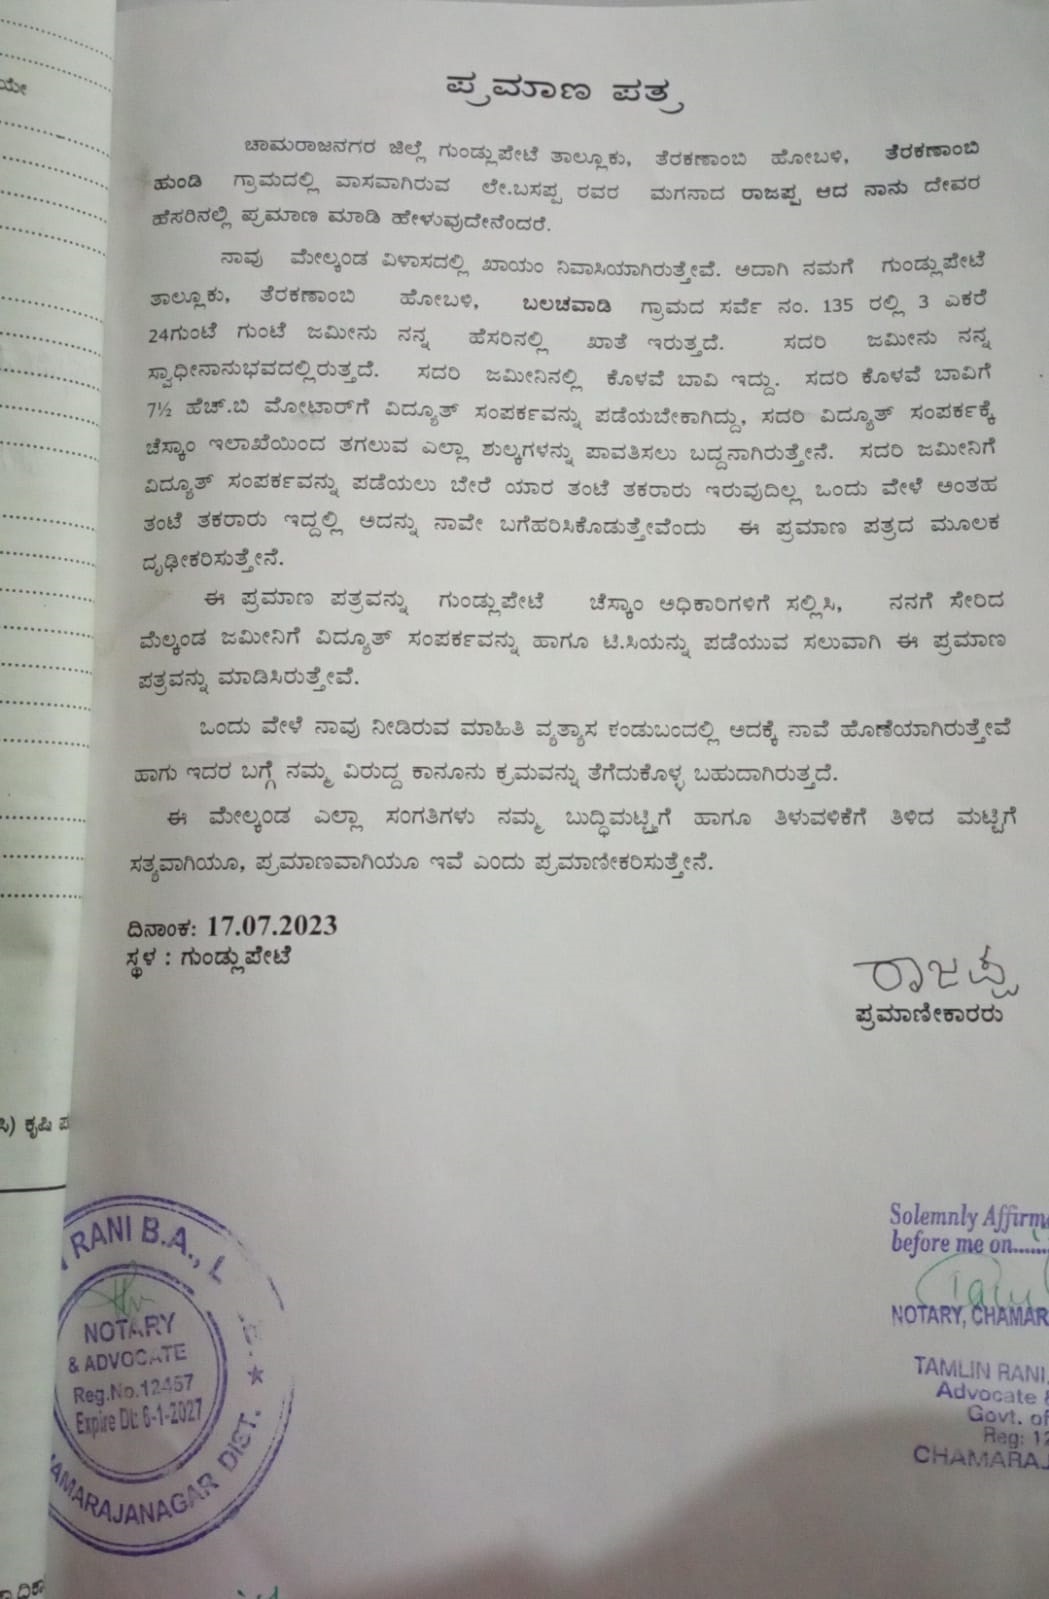 ಯೇ
ಪ್ರಮಾಣ ಪತ್ರ
ಚಾಮರಾಜನಗರ ಜಿಲ್ಲೆ ಗುಂಡ್ಲುಪೇಟೆ ತಾಲ್ಲೂಕು, ತೆರಕಣಾಂಬಿ ಹೋಬಳಿ, ತೆರಕಣಾಂಬಿ
ಹುಂಡಿ ಗ್ರಾಮದಲ್ಲಿ ವಾಸವಾಗಿರುವ ಲೇ.ಬಸಪ್ಪ ರವರ ಮಗನಾದ ರಾಜಪ್ಪ ಆದ ನಾನು ದೇವರ
ಹೆಸರಿನಲ್ಲಿ ಪ್ರಮಾಣ ಮಾಡಿ ಹೇಳುವುದೇನೆಂದರೆ.
ನಾವು ಮೇಲ್ಕಂಡ ವಿಳಾಸದಲ್ಲಿ ಖಾಯಂ ನಿವಾಸಿಯಾಗಿರುತ್ತೇವೆ. ಅದಾಗಿ ನಮಗೆ ಗುಂಡ್ಲುಪೇಟೆ
ತಾಲ್ಲೂಕು, ತೆರಕಣಾಂಬಿ ಹೋಬಳಿ, ಬಲಚವಾಡಿ ಗ್ರಾಮದ ಸರ್ವೆ ನಂ. 135 ರಲ್ಲಿ 3 ಎಕರೆ
24ಗುಂಟೆ ಗುಂಟೆ ಜಮೀನು ನನ್ನ ಹೆಸರಿನಲ್ಲಿ ಖಾತೆ ಇರುತ್ತದೆ. ಸದರಿ ಜಮೀನು ನನ್ನ
ಸ್ವಾಧೀನಾನುಭವದಲ್ಲಿರುತ್ತದೆ. ಸದರಿ ಜಮೀನಿನಲ್ಲಿ ಕೊಳವೆ ಬಾವಿ ಇದ್ದು. ಸದರಿ ಕೊಳವೆ ಬಾವಿಗೆ
7½ ಹೆಚ್.ಬಿ ಮೋಟಾರ್‌ಗೆ ವಿದ್ಯೂತ್ ಸಂಪರ್ಕವನ್ನು ಪಡೆಯಬೇಕಾಗಿದ್ದು, ಸದರಿ ವಿದ್ಯೂತ್ ಸಂಪರ್ಕಕ್ಕೆ
ಚೆಸ್ಕಾಂ ಇಲಾಖೆಯಿಂದ ತಗಲುವ ಎಲ್ಲಾ ಶುಲ್ಕಗಳನ್ನು ಪಾವತಿಸಲು ಬದ್ದನಾಗಿರುತ್ತೇನೆ. ಸದರಿ ಜಮೀನಿಗೆ
ವಿದ್ಯೂತ್ ಸಂಪರ್ಕವನ್ನು ಪಡೆಯಲು ಬೇರೆ ಯಾರ ತಂಟೆ ತಕರಾರು ಇರುವುದಿಲ್ಲ ಒಂದು ವೇಳೆ ಅಂತಹ
ತಂಟೆ ತಕರಾರು ಇದ್ದಲ್ಲಿ ಅದನ್ನು ನಾವೇ ಬಗೆಹರಿಸಿಕೊಡುತ್ತೇವೆಂದು ಈ ಪ್ರಮಾಣ ಪತ್ರದ ಮೂಲಕ
ದೃಢೀಕರಿಸುತ್ತೇನೆ.
ಈ ಪ್ರಮಾಣ ಪತ್ರವನ್ನು ಗುಂಡ್ಲುಪೇಟೆ ಚೆಸ್ಕಾಂ ಅಧಿಕಾರಿಗಳಿಗೆ ಸಲ್ಲಿಸಿ, ನನಗೆ ಸೇರಿದ
ಮೆಲ್ಕಂಡ ಜಮೀನಿಗೆ ವಿದ್ಯೂತ್ ಸಂಪರ್ಕವನ್ನು ಹಾಗೂ ಟಿ.ಸಿಯನ್ನು ಪಡೆಯುವ ಸಲುವಾಗಿ ಈ ಪ್ರಮಾಣ
ಪತ್ರವನ್ನು ಮಾಡಿಸಿರುತ್ತೇವೆ.
ಒಂದು ವೇಳೆ ನಾವು ನೀಡಿರುವ ಮಾಹಿತಿ ವ್ಯತ್ಯಾಸ ಕಂಡುಬಂದಲ್ಲಿ ಅದಕ್ಕೆ ನಾವೆ ಹೊಣೆಯಾಗಿರುತ್ತೇವೆ
ಹಾಗು ಇದರ ಬಗ್ಗೆ ನಮ್ಮ ವಿರುದ್ದ ಕಾನೂನು ಕ್ರಮವನ್ನು ತೆಗೆದುಕೊಳ್ಳ ಬಹುದಾಗಿರುತ್ತದೆ.
ಈ ಮೇಲ್ಕಂಡ ಎಲ್ಲಾ ಸಂಗತಿಗಳು ನಮ್ಮ ಬುದ್ಧಿಮಟ್ಟಿಗೆ ಹಾಗೂ ತಿಳುವಳಿಕೆಗೆ ತಿಳಿದ ಮಟ್ಟಿಗೆ
ಸತ್ಯವಾಗಿಯೂ, ಪ್ರಮಾಣವಾಗಿಯೂ ಇವೆ ಎಂದು ಪ್ರಮಾಣೀಕರಿಸುತ್ತೇನೆ.
ದಿನಾಂಕ: 17.07.2023
ಸ್ಥಳ : ಗುಂಡ್ಲುಪೇಟೆ
ರಾಜಪ್ಪ
ಪ್ರಮಾಣೀಕಾರರು
ಸಿ) ಕೃಷಿ ಪ
RANI B.A., L
NOTARY
& ADVOCATE
Reg.No.12457
Expire Dt: 6-1-2027
AMARAJANAGAR DIST.
Solemnly Affirm
before me on.......
NOTARY, CHAMAR
TAMLIN RANI,
Advocate &
Govt. of
Reg: 12
CHAMARAJ